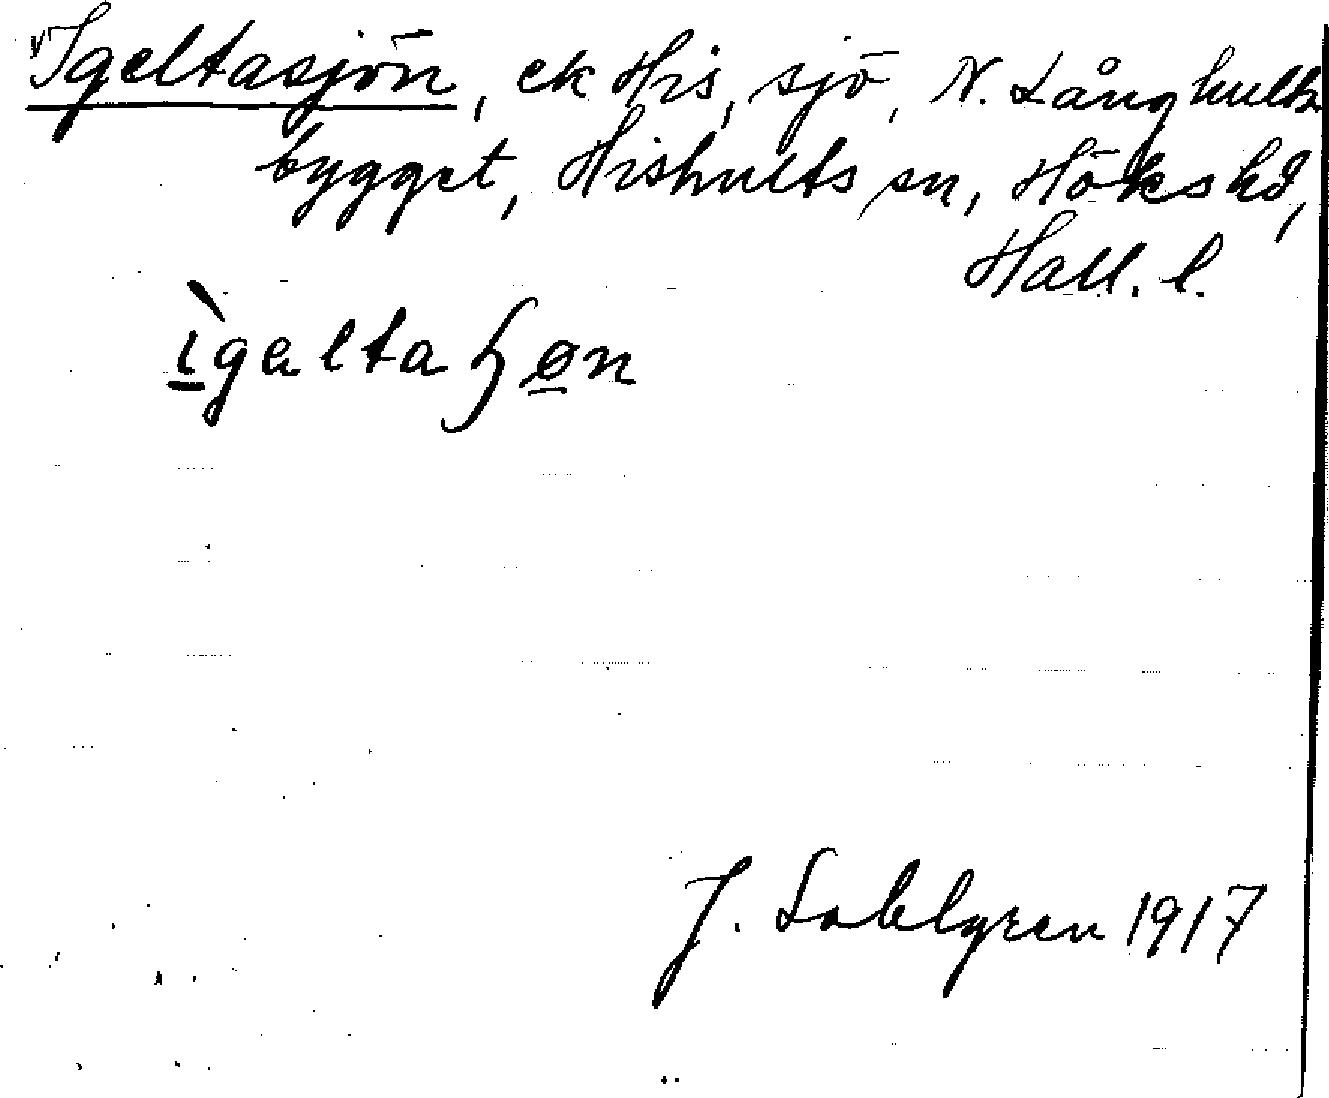 "Igeltasjön, ek His, sjö, N. Långhults
bygget, Hishults sn, Höks hd,
Hall. l.
ìgəltaɧøn
J. Sahlgren 1917